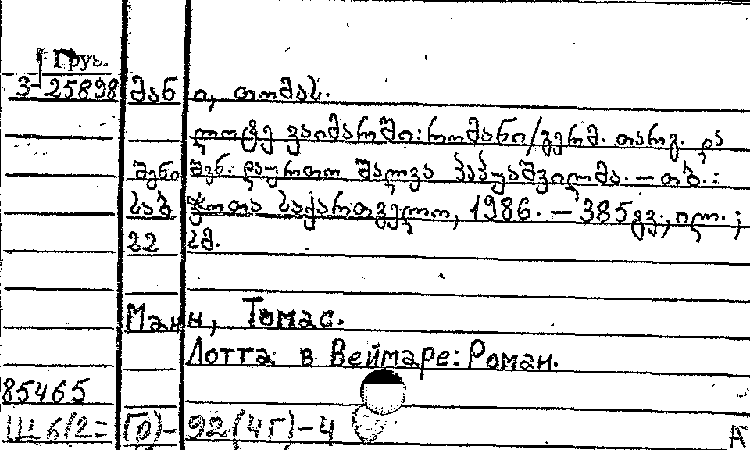 Груз.
3-25898 მანი, თომას.
ლოტე ვაიმარში: რომანი/გერმ. თარგ. და
შენიშვნ. დაურთო შალვა პაპუაშვილმა. – თბ.:
საბჭოთა საქართველო, 1986. – 385გვ., ილ.;
22 სმ.
Манн, Томас.
Лотта в Веймаре: Роман.
85465
Ш6/2= (Го)- 92(4Г)-4
А